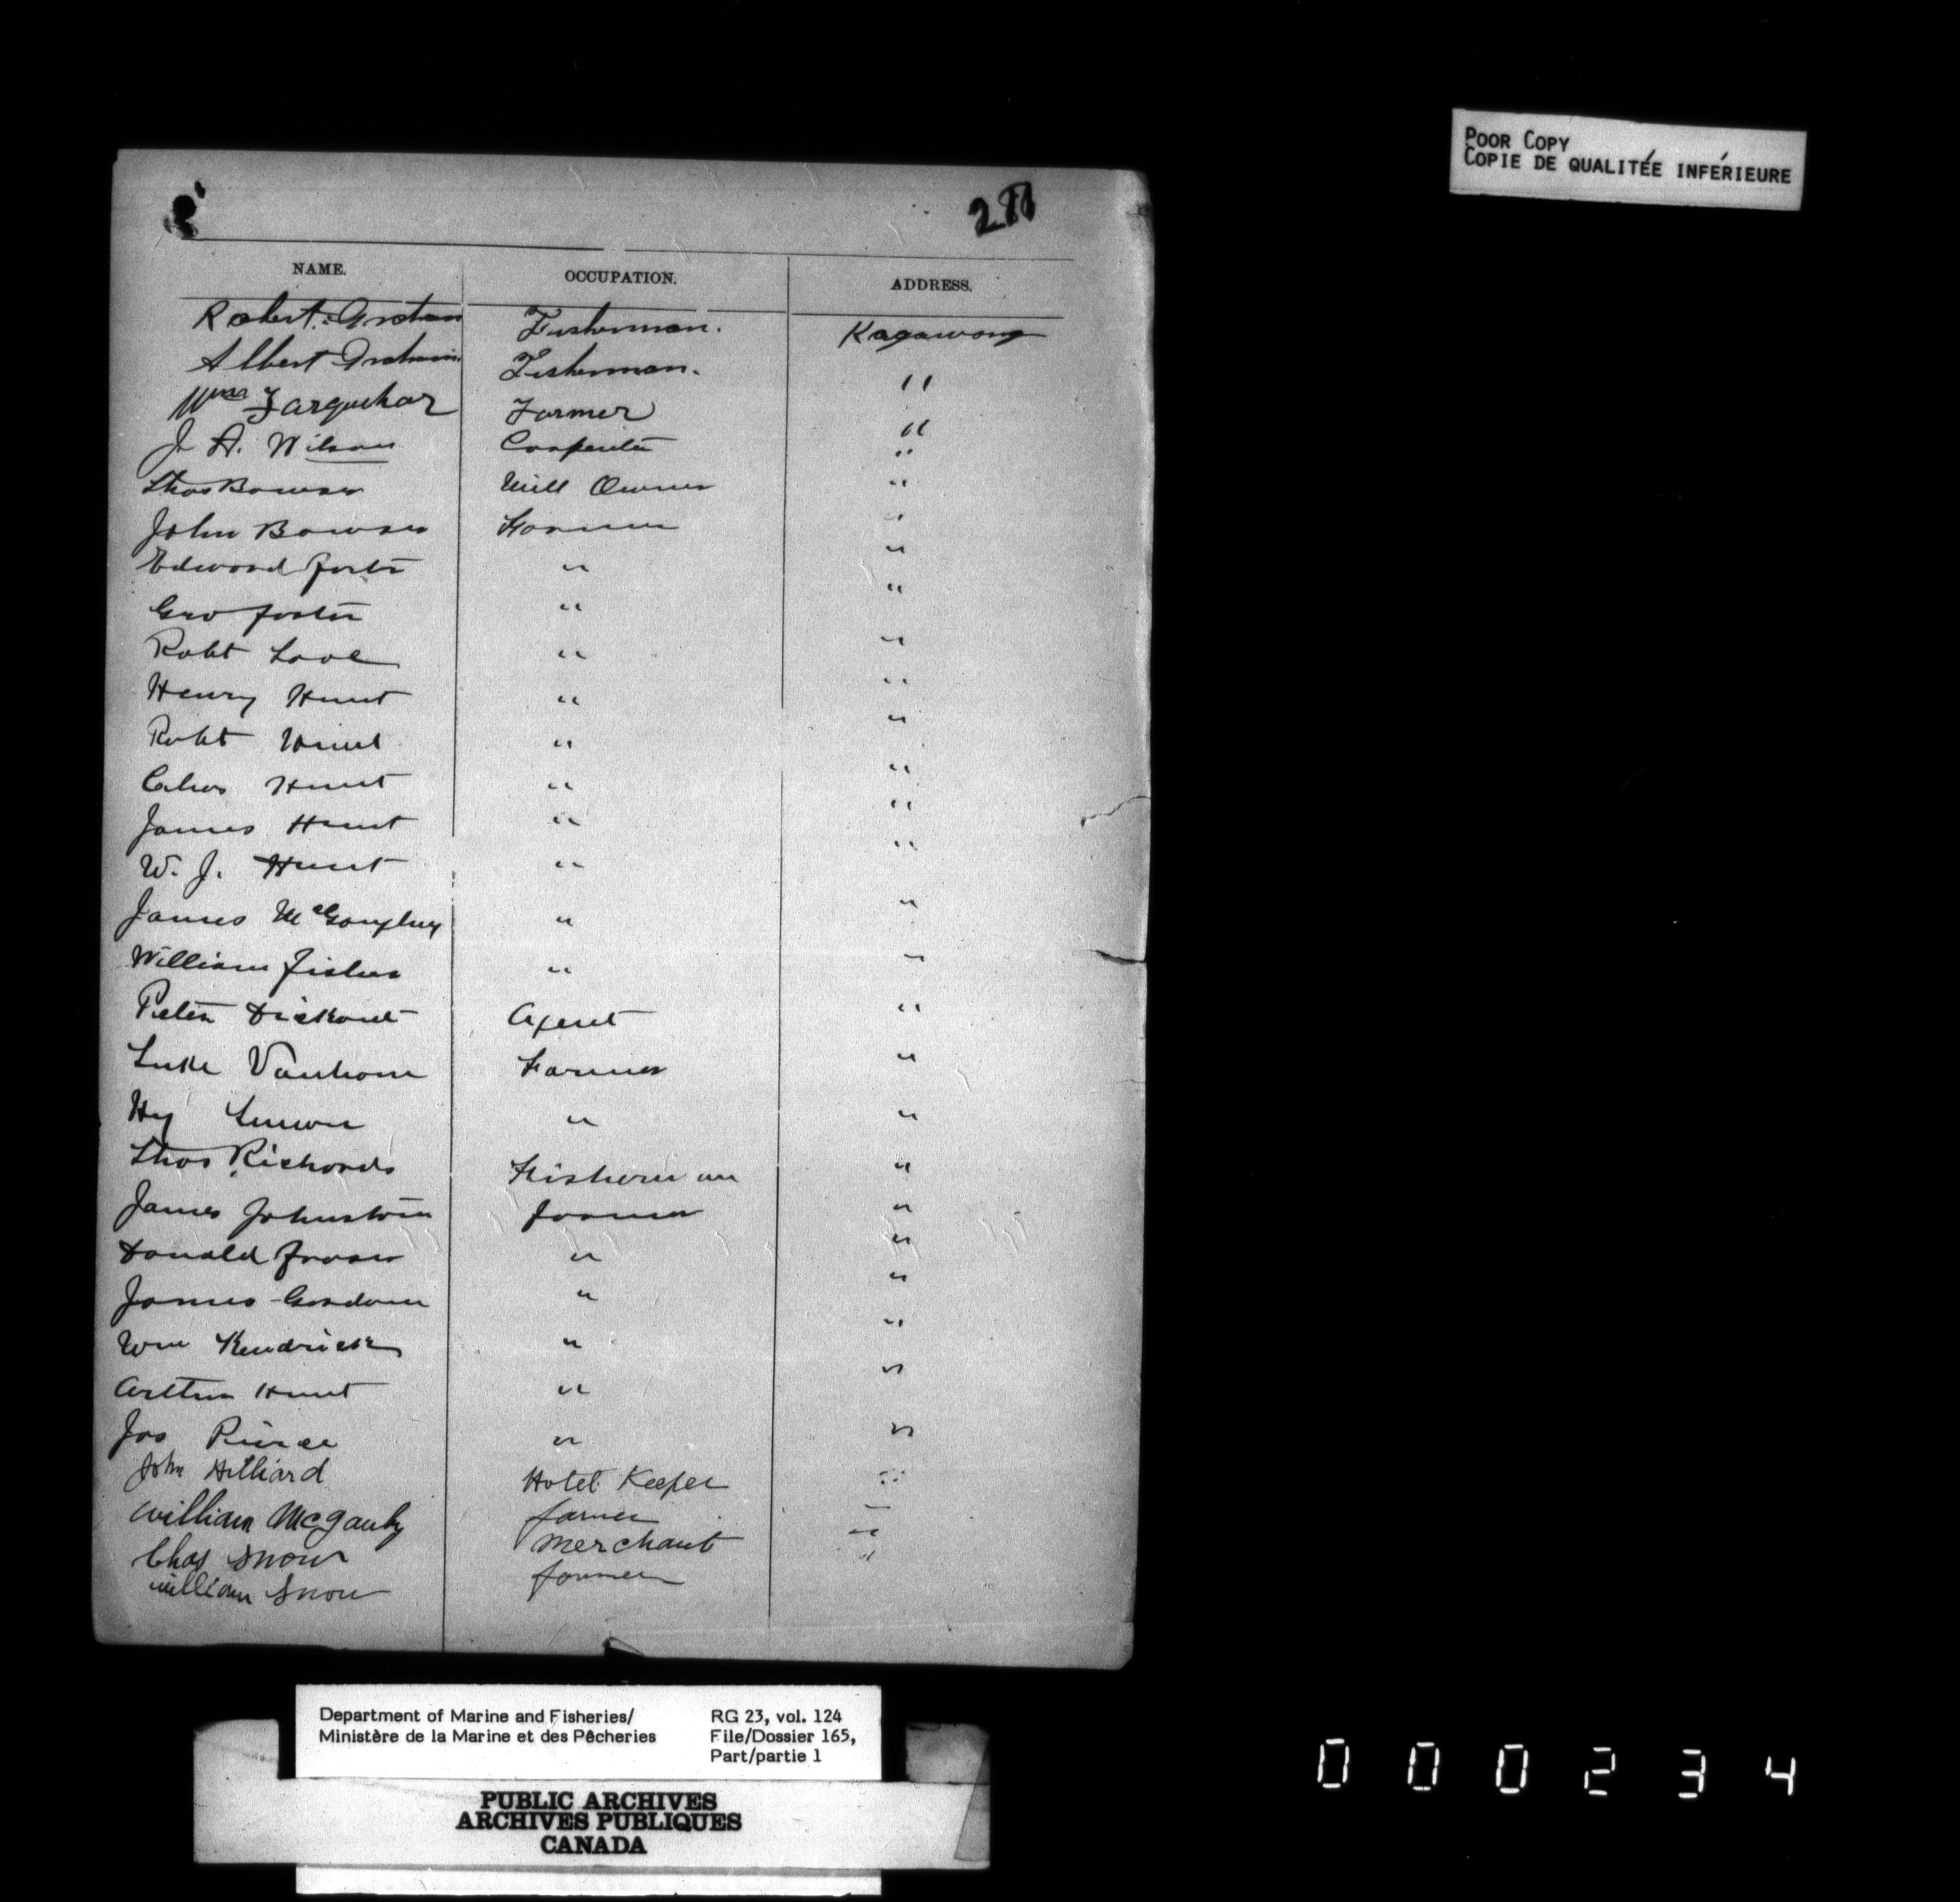 POOR COPY
COPIE DE QUALITÉE INFÉRIEURE
NAME. OCCUPATION. ADDRESS.
Robert Graham Fisherman. Kagawong
Albert Graham Fisherman. "
Wm Farquhar Farmer "
J A. Wilson Carpenter "
Thos Bowser Mill Owner "
John Bowser Farmer "
Edward Foster " "
Geo Foster " "
Robt Love " "
Henry Hunt " "
Robt Hunt " "
Chas Hunt " "
James Hunt " "
W. J. Hunt " "
James " "
William Fisher " "
Peter Agent "
Luke Vanhorn Farmer "
Hy " "
Thos Richards Fisherman "
James Johnston farmer "
Donald Fraser " "
James Gordon " "
Wm Kendrick " "
Arthur Hunt " "
Jos Pierce " "
John Hilliard Hotel Keeper "
William McGauhy farmer "
Chas Snow Merchant "
william Snow farmer "
Department of Marine and Fisheries/ RG 23, vol. 124
Ministère de la Marine et des Pêcheries File/Dossier 165,
Part/partie 1
PUBLIC ARCHIVES
ARCHIVES PUBLIQUES
CANADA
000234